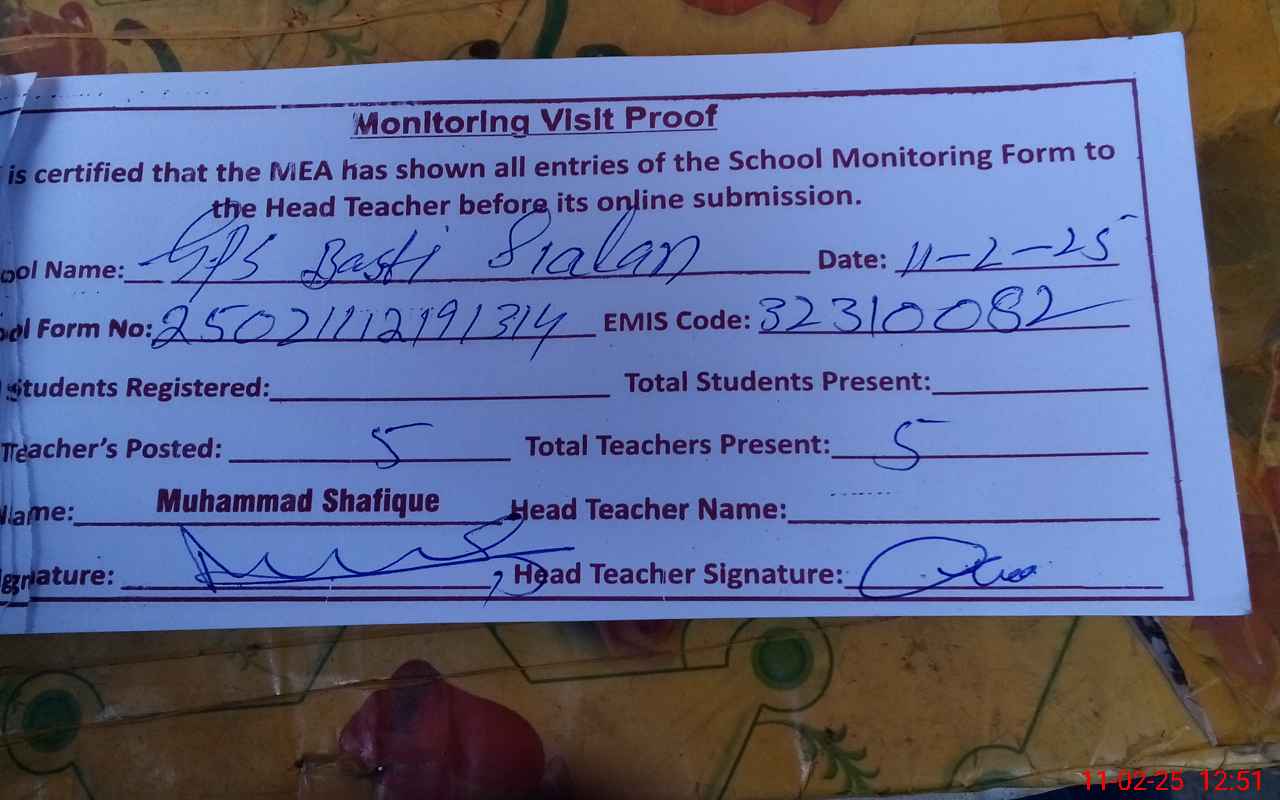 Monitoring Visit Proof
is certified that the MEA has shown all entries of the School Monitoring Form to
the Head Teacher before its online submission.
ool Name: GPS Basti Sialan Date: 11-2-25
ol Form No: 25021112191314 EMIS Code: 32310082
Students Registered: Total Students Present:
Teacher's Posted: 5 Total Teachers Present: 5
Name: Muhammad Shafique Head Teacher Name:
gnature: Head Teacher Signature:
11-02-25 12:51